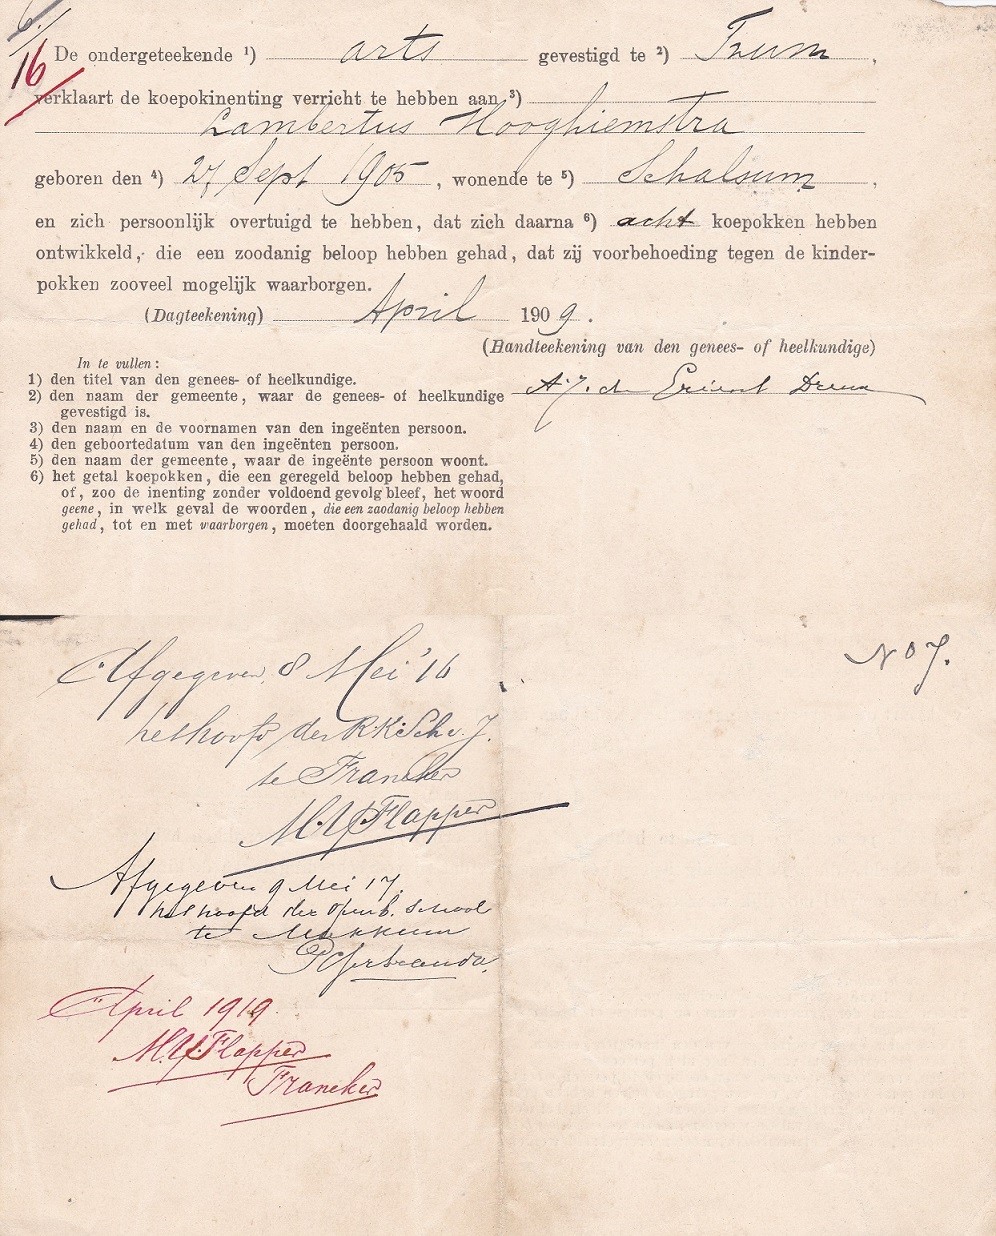 16
De ondergeteekende ¹) arts gevestigd te ²) Tzum,
verklaart de koepokinenting verricht te hebben aan ³)
Lambertus Hooghiemstra
geboren den ⁴) 27 Sept 1905, wonende te ⁵) Schalsum,
en zich persoonlijk overtuigd te hebben, dat zich daarna ⁶) acht koepokken hebben
ontwikkeld, die een zoodanig beloop hebben gehad, dat zij voorbehoeding tegen de kinder-
pokken zooveel mogelijk waarborgen.
(Dagteekening) April 1909.
(Handteekening van den genees- of heelkundige)
In te vullen:
1) den titel van den genees- of heelkundige.
2) den naam der gemeente, waar de genees- of heelkundige
gevestigd is.
3) den naam en de voornamen van den ingeënten persoon.
4) den geboortedatum van den ingeënten persoon.
5) den naam der gemeente, waar de ingeënte persoon woont.
6) het getal koepokken, die een geregeld beloop hebben gehad,
of, zoo de inenting zonder voldoend gevolg bleef, het woord
geene, in welk geval de woorden, die een zaodanig beloop hebben
gehad, tot en met waarborgen, moeten doorgehaald worden.
Afgegeven, 8 Mei '16
het hoofd der R.K. Sch. v. J.
te Franeker
Flapper
No 7.
Afgegeven 9 Mei 17.
het hoofd der Openb. School
te Makkum
April 1919.
Flapper
Franeker